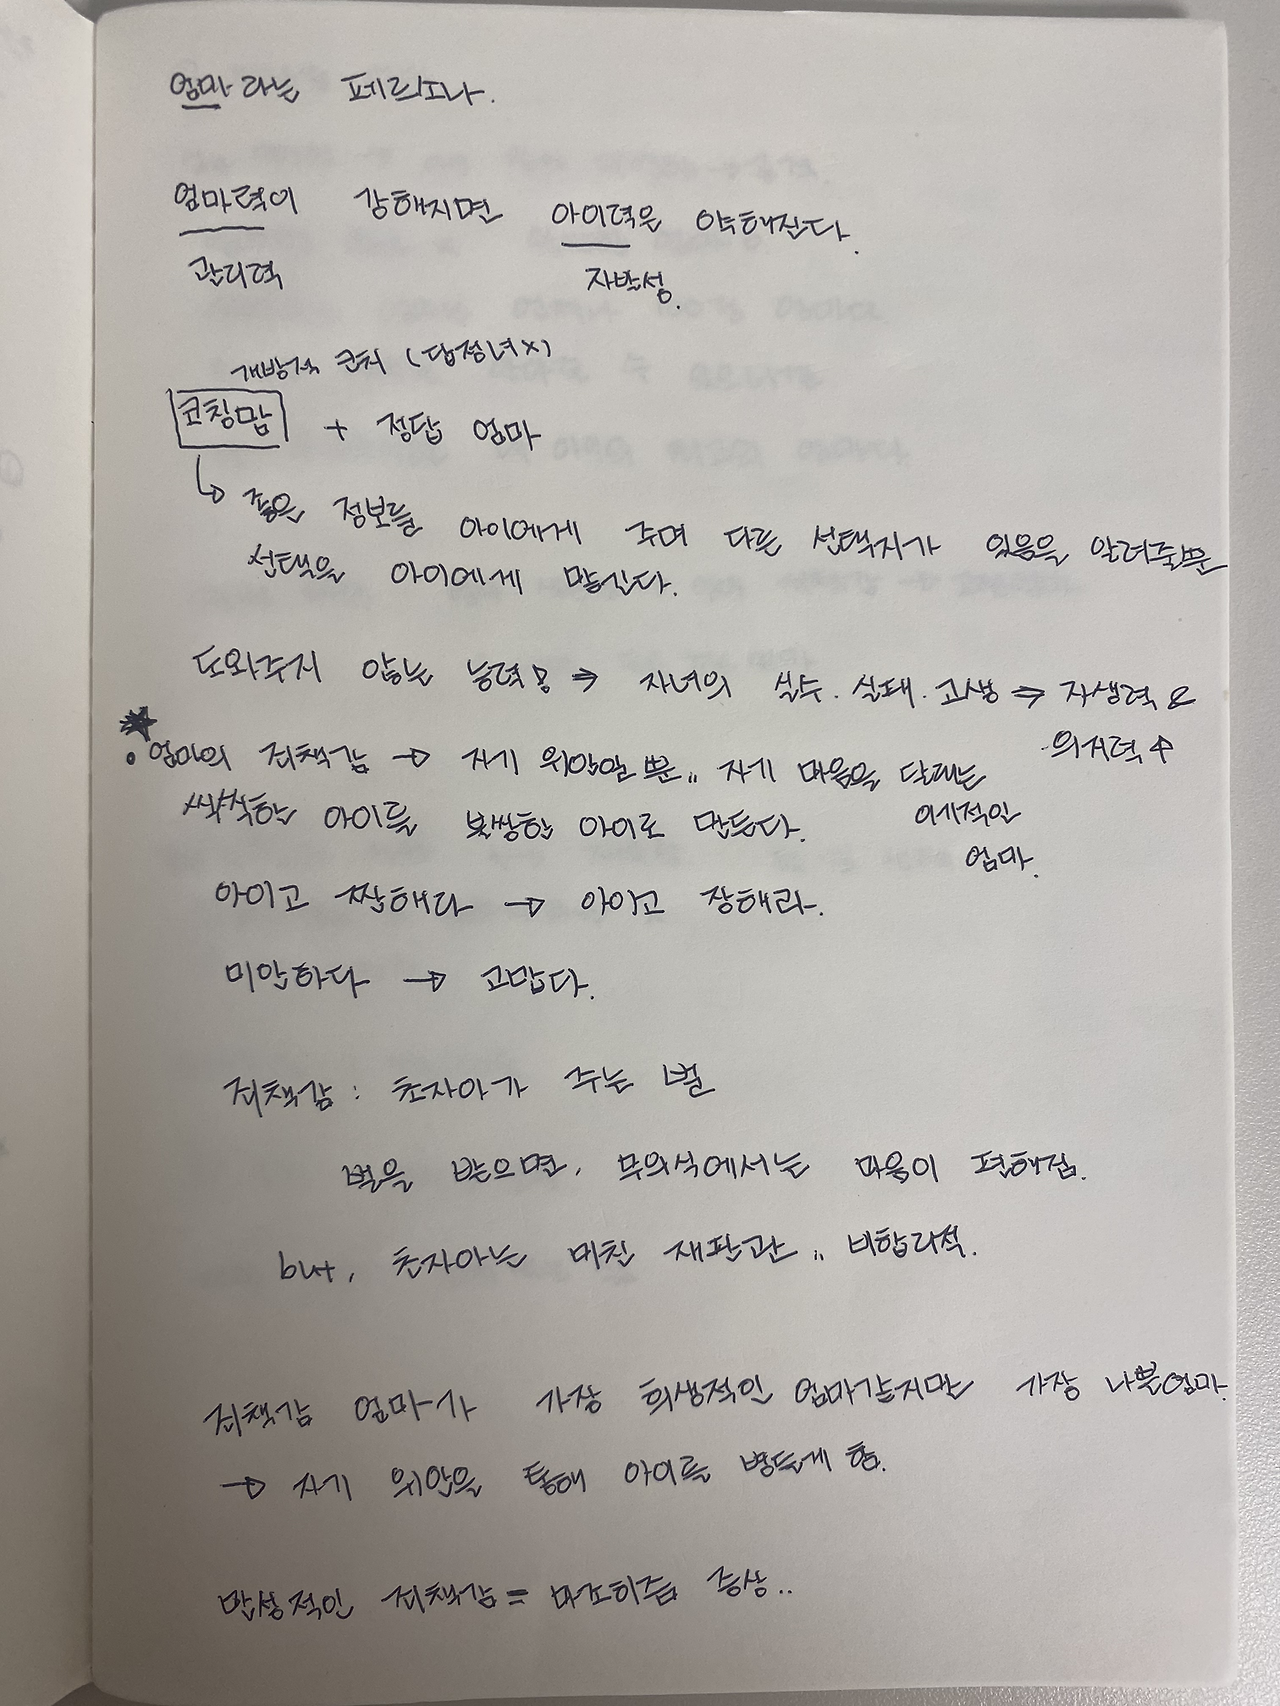 엄마라는 페르소나.
엄마력이 강해지면 아이력은 약해진다.
관리력 자발성.
개방적 코치 (답정너X)
코칭맘 + 정답 엄마
↳ 좋은 정보를 아이에게 주며 다른 선택지가 있음을 알려줄뿐
선택을 아이에게 맡긴다.
도와주지 않는 능력! ⇒ 자녀의 실수. 실패. 고생 ⇒ 자생력 &
의지력↑
★
• 엄마의 죄책감 → 자기 위안일 뿐.. 자기 마음을 달래는
이기적인
엄마.
씩씩한 아이를 불쌍한 아이로 만든다.
아이고 짠해라 → 아이고 장해라.
미안하다 → 고맙다.
죄책감 : 초자아가 주는 벌
벌을 받으면, 무의식에서는 마음이 편해짐.
but, 초자아는 미친 재판관.. 비합리적.
죄책감 엄마가 가장 희생적인 엄마같지만 가장 나쁜엄마.
→ 자기 위안을 통해 아이를 병들게 함.
만성적인 죄책감 = 마조히즘 증상..